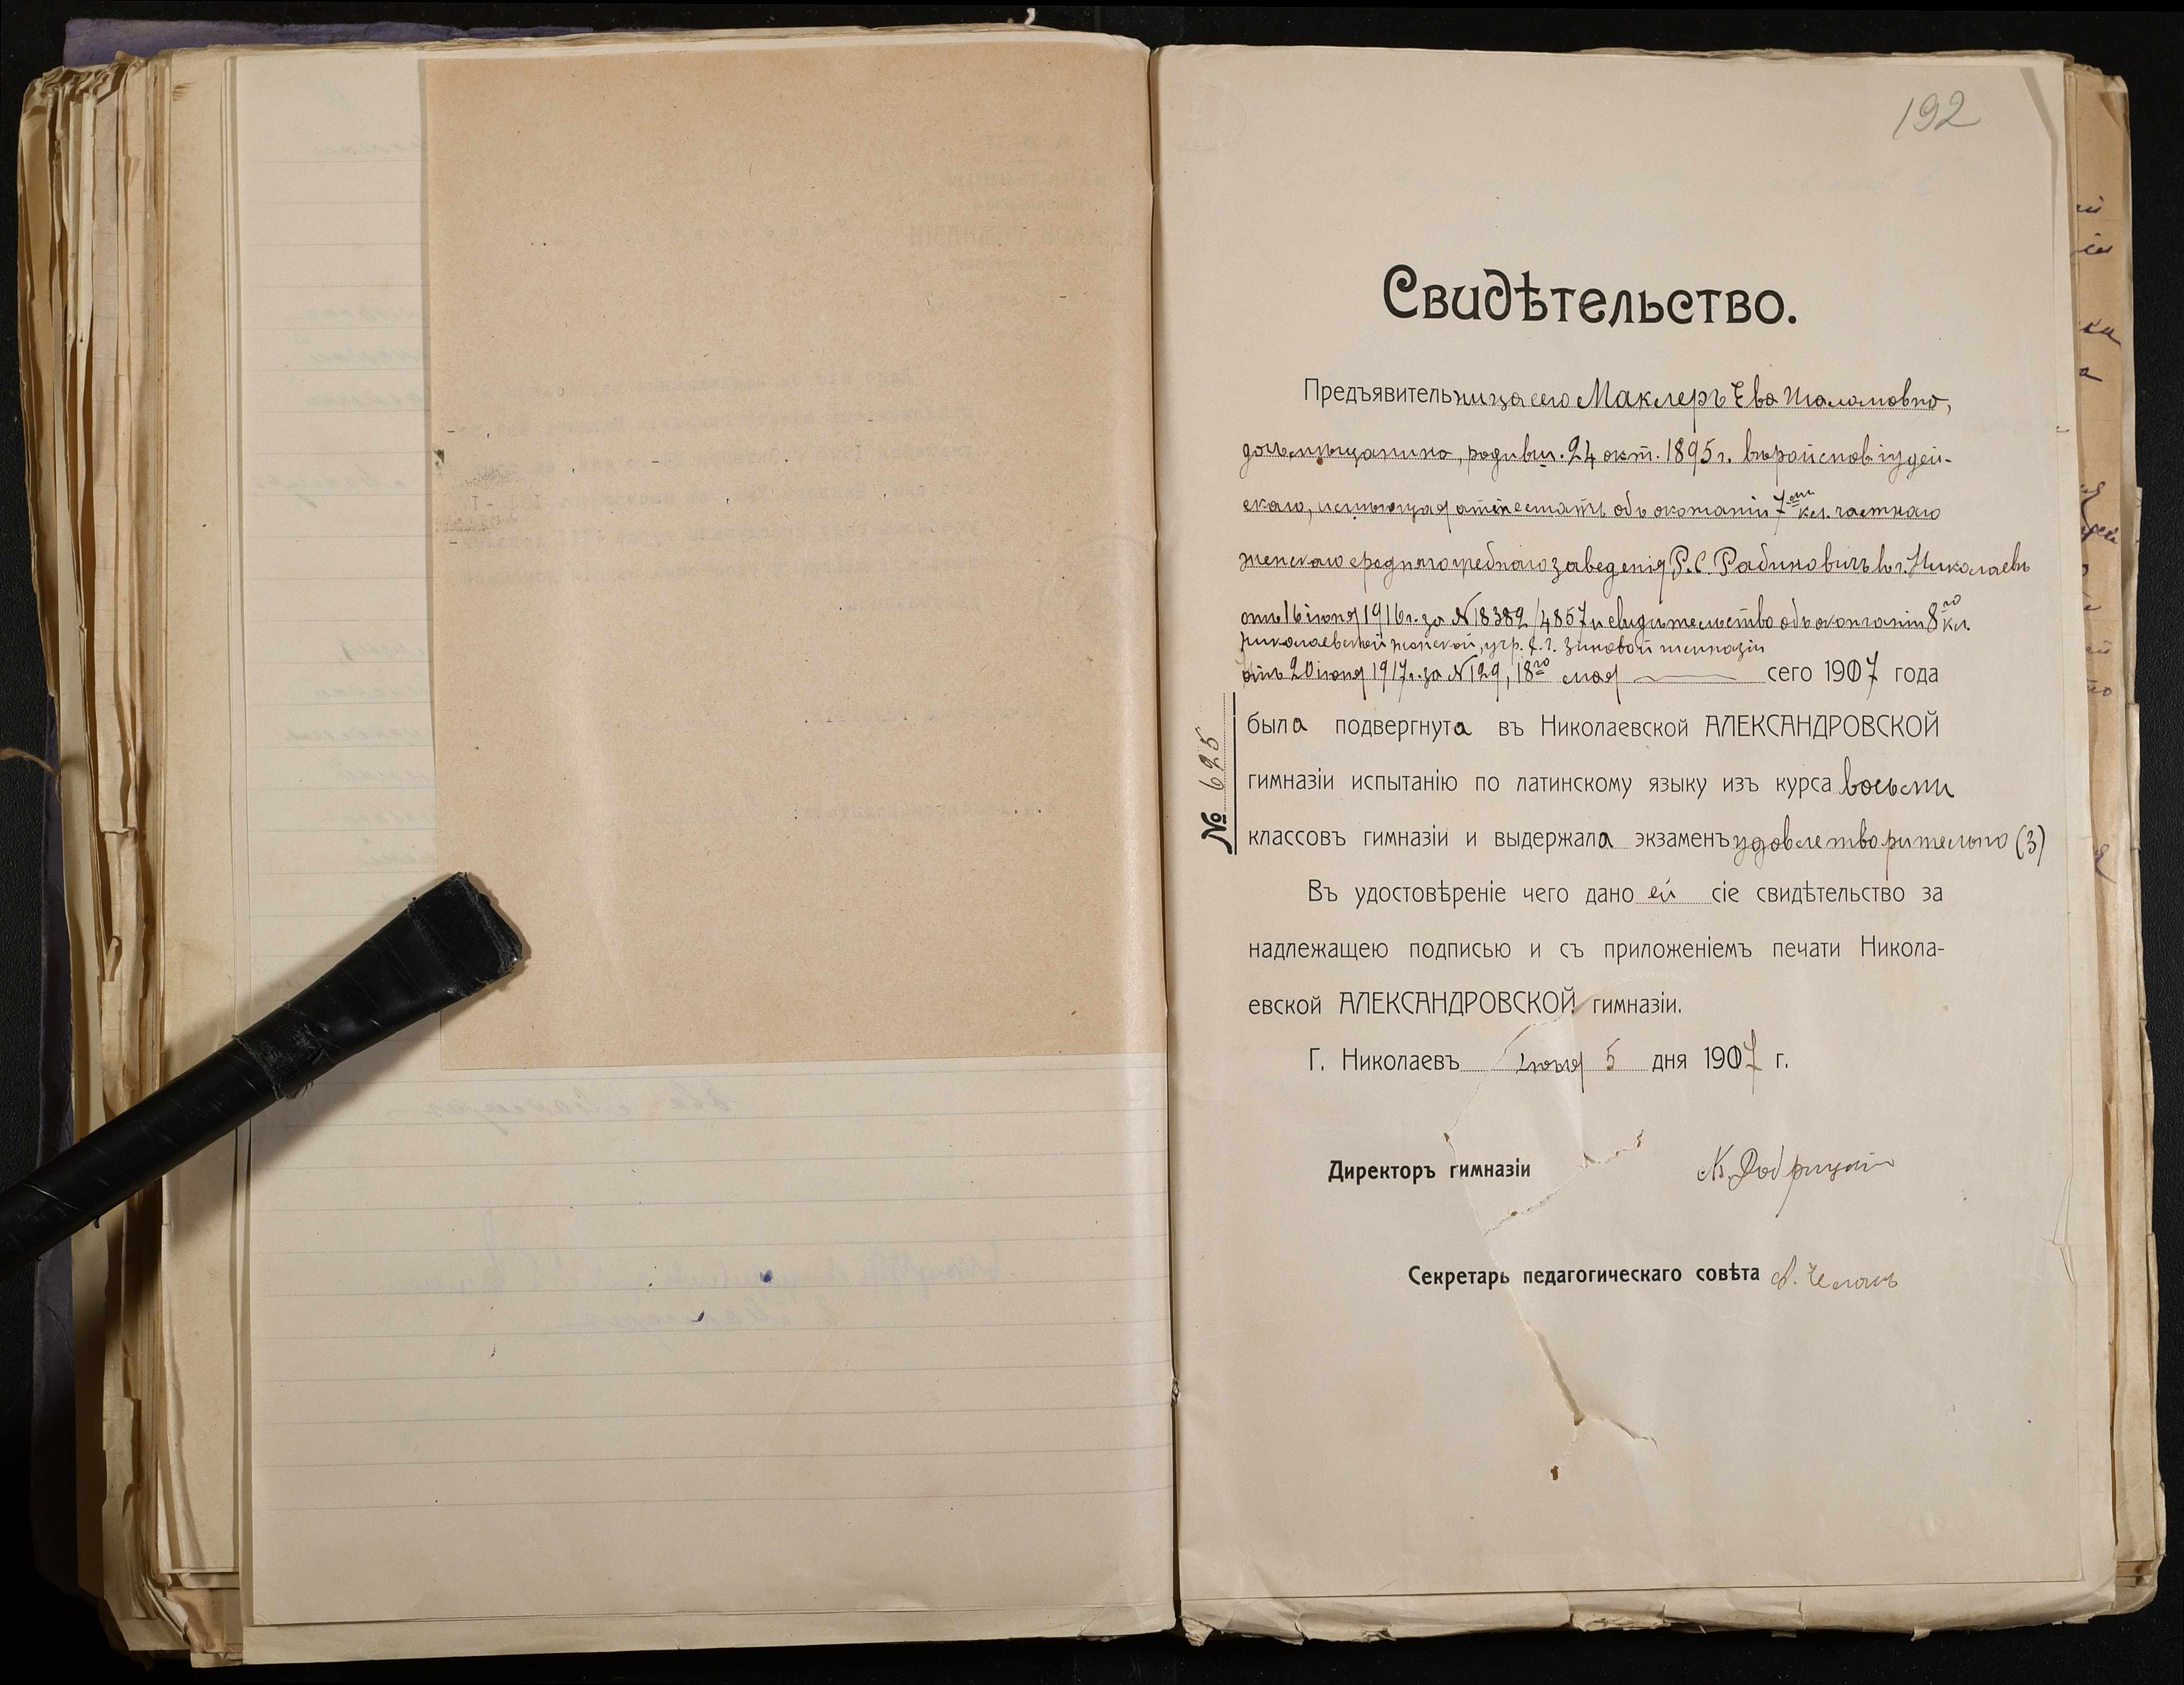 192
Свидѣтельство.
Предъявительница сего Маклеръ Ева Шаламовна,
дочь мѣщанина, родивш. 24 окт. 1895 г. вѣроисповѣд. іудей-
скаго, имѣющая аттестатъ объ окончаніи 7ми кл. частнаго
женскаго средняго учебнаго заведенія Р. С. Рабиновичъ въ г. Николаевѣ
отъ 16 іюня 1916 г. за № 18382/4857 и свидѣтельство объ окончаніи 8го кл.
Николаевской женской, учр. Зиновой гимназіи
отъ 20 іюня 1917 г. за № 129, 18го мая сего 1917 года
была подвергнута въ Николаевской АЛЕКСАНДРОВСКОЙ
гимназіи испытанію по латинскому языку изъ курса восьми
классовъ гимназіи и выдержала экзаменъ удовлетворительно (3)
Въ удостовѣреніе чего дано ей сіе свидѣтельство за
надлежащею подписью и съ приложеніемъ печати Никола-
евской АЛЕКСАНДРОВСКОЙ гимназіи.
Г. Николаевъ 5 дня 1917 г.
Директоръ гимназіи
Секретарь педагогическаго совѣта
№ 625